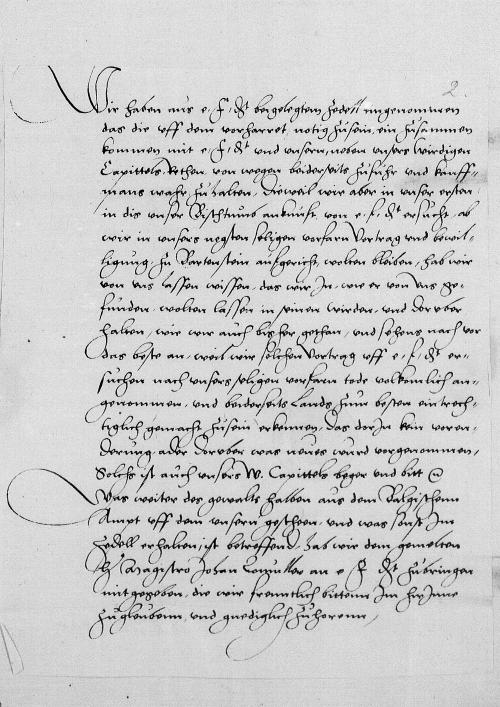 2.
Wir haben aus e. f. dt beigelegtem zedell eingenommen
das die uff dem vorharret notig zusein, ein zusammen
kommen mit e. f. dt und unsern, neben unsers wirdigen
Capittels Rethen, von wegen beiderseits zufuhr und kauff-
mans wahr zuhalten, Dieweil wir aber in unser ersten
in dis unser Bischtumb ankunfft, von e. f. dt ersucht, ob
wir in unsers negsten seligen vorfarn Vortrag und bewil-
ligung, zu Bartenstein auffgericht, wolten bleiben, hab wir
von uns lassen wissen, das wir In, wie er von uns ge-
funden, wolten lassen in seinen wirden, und doruber
halten, wie wir auch bisher gethan, und sehens nach vor
das beste an, weil wir solchen Vortrag uff e. f. dt er-
suchen nach unsers seligen vorfarn tode volkomlich an-
genommen, und beiderseits Lands zum besten eintrech-
tiglich gemacht zusein erkennen, das dorIn kein voren-
derung, ader doruber was neues wurd vorgenommen,
Solchs ist auch unsers W. Capittels beger und bitt
Was weiter des gewalts halben aus dem Balgischenn
Ampt uff dem unsern gescheen, und was sonst Im
Zedell erhalten, ist betreffend, hab wir dem gemelten
Magistro Johan an e. f. dt zubringen
mitgegeben, die wir freuntlich bittenn Im hirInne
zuglaubenn, und gnediglich zuhorenn,